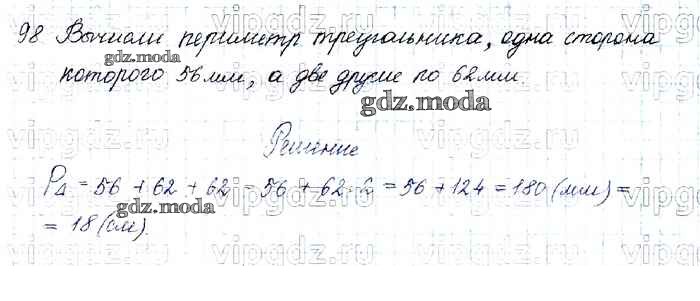 98 Вычисли периметр треугольника, одна сторона
gdz.moda
которого 56 мм, а две другие по 62 мм.
gdz.moda
Решение
P∆ = 56 + 62 + 62 = 56 + 62·2 = 56 + 124 = 180 (мм) =
gdz.moda
= 18 (см).
vipgdz.ru